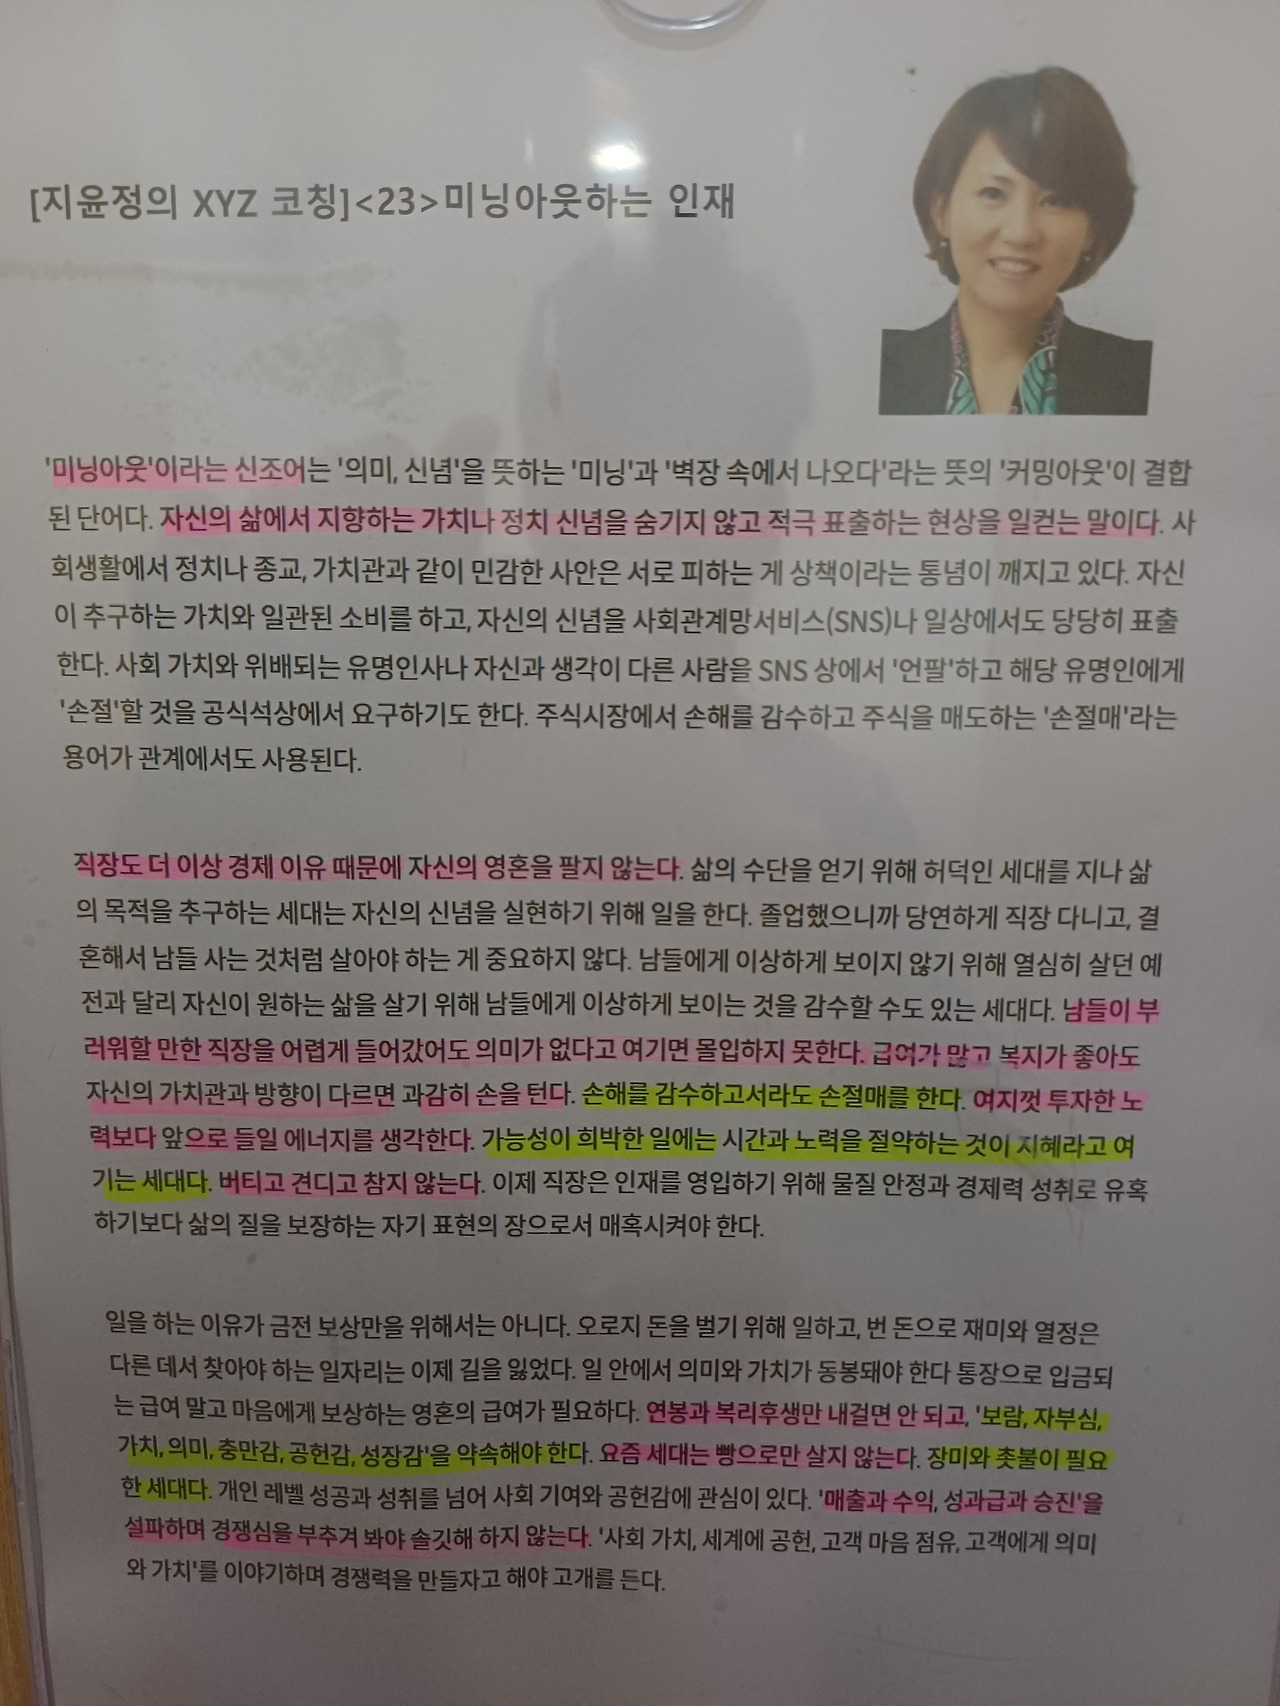 [지윤정의 XYZ 코칭]<23>미닝아웃하는 인재
'미닝아웃'이라는 신조어는 '의미, 신념'을 뜻하는 '미닝'과 '벽장 속에서 나오다'라는 뜻의 '커밍아웃'이 결합
된 단어다. 자신의 삶에서 지향하는 가치나 정치 신념을 숨기지 않고 적극 표출하는 현상을 일컫는 말이다. 사
회생활에서 정치나 종교, 가치관과 같이 민감한 사안은 서로 피하는 게 상책이라는 통념이 깨지고 있다. 자신
이 추구하는 가치와 일관된 소비를 하고, 자신의 신념을 사회관계망서비스(SNS)나 일상에서도 당당히 표출
한다. 사회 가치와 위배되는 유명인사나 자신과 생각이 다른 사람을 SNS 상에서 '언팔'하고 해당 유명인에게
'손절'할 것을 공식석상에서 요구하기도 한다. 주식시장에서 손해를 감수하고 주식을 매도하는 '손절매'라는
용어가 관계에서도 사용된다.
직장도 더 이상 경제 이유 때문에 자신의 영혼을 팔지 않는다. 삶의 수단을 얻기 위해 허덕인 세대를 지나 삶
의 목적을 추구하는 세대는 자신의 신념을 실현하기 위해 일을 한다. 졸업했으니까 당연하게 직장 다니고, 결
혼해서 남들 사는 것처럼 살아야 하는 게 중요하지 않다. 남들에게 이상하게 보이지 않기 위해 열심히 살던 예
전과 달리 자신이 원하는 삶을 살기 위해 남들에게 이상하게 보이는 것을 감수할 수도 있는 세대다. 남들이 부
러워할 만한 직장을 어렵게 들어갔어도 의미가 없다고 여기면 몰입하지 못한다. 급여가 많고 복지가 좋아도
자신의 가치관과 방향이 다르면 과감히 손을 턴다. 손해를 감수하고서라도 손절매를 한다. 여지껏 투자한 노
력보다 앞으로 들일 에너지를 생각한다. 가능성이 희박한 일에는 시간과 노력을 절약하는 것이 지혜라고 여
기는 세대다. 버티고 견디고 참지 않는다. 이제 직장은 인재를 영입하기 위해 물질 안정과 경제력 성취로 유혹
하기보다 삶의 질을 보장하는 자기 표현의 장으로서 매혹시켜야 한다.
일을 하는 이유가 금전 보상만을 위해서는 아니다. 오로지 돈을 벌기 위해 일하고, 번 돈으로 재미와 열정은
다른 데서 찾아야 하는 일자리는 이제 길을 잃었다. 일 안에서 의미와 가치가 동봉돼야 한다 통장으로 입금되
는 급여 말고 마음에게 보상하는 영혼의 급여가 필요하다. 연봉과 복리후생만 내걸면 안 되고, '보람, 자부심,
가치, 의미, 충만감, 공헌감, 성장감'을 약속해야 한다. 요즘 세대는 빵으로만 살지 않는다. 장미와 촛불이 필요
한 세대다. 개인 레벨 성공과 성취를 넘어 사회 기여와 공헌감에 관심이 있다. '매출과 수익, 성과급과 승진'을
설파하며 경쟁심을 부추겨 봐야 솔깃해 하지 않는다. '사회 가치, 세계에 공헌, 고객 마음 점유, 고객에게 의미
와 가치'를 이야기하며 경쟁력을 만들자고 해야 고개를 든다.